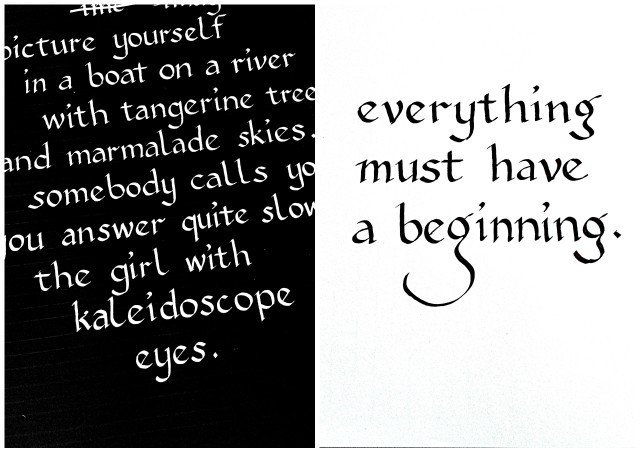 picture yourself
in a boat on a river
with tangerine tree
and marmalade skies.
somebody calls yo
you answer quite slow
the girl with
kaleidoscope
eyes.
everything
must have
a beginning.